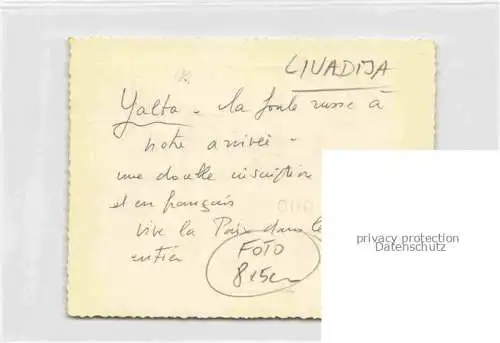 LIVADIJA
Yalta - la foule russe à
notre arrivée -
une double inscription
et en français
vive la Paix dans le
entier
FOTO
8x5cm
privacy protection
Datenschutz